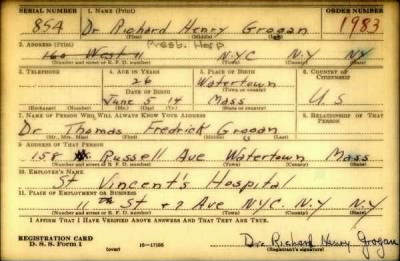 SERIAL NUMBER 1. NAME (Print) ORDER NUMBER
854 Dr Richard Henry Grogan 1983
(First) (Middle) (Last)
2. ADDRESS (Print) Presb. Hosp
160 West 11 N.Y.C. N.Y NY
(Number and street or R. F. D. number) (Town) (County) (State)
3. TELEPHONE 4. AGE IN YEARS 5. PLACE OF BIRTH 6. COUNTRY OF CITIZENSHIP
26 Watertown
DATE OF BIRTH (Town or county)
June 5 14 Mass U.S
(Exchange) (Number) (Mo.) (Day) (Yr.) (State or country)
7. NAME OF PERSON WHO WILL ALWAYS KNOW YOUR ADDRESS 8. RELATIONSHIP OF THAT PERSON
Dr Thomas Fredrick Grogan
(Mr., Mrs., Miss) (First) (Middle) (Last)
9. ADDRESS OF THAT PERSON
158 Russell Ave Watertown Mass
(Number and street or R. F. D. number) (Town) (County) (State)
10. EMPLOYER'S NAME
St Vincent's Hospital
11. PLACE OF EMPLOYMENT OR BUSINESS
11th St + 7 Ave NYC. N.Y. N.Y
(Number and street or R. F. D. number) (Town) (County) (State)
I AFFIRM THAT I HAVE VERIFIED ABOVE ANSWERS AND THAT THEY ARE TRUE.
REGISTRATION CARD
D. S. S. Form 1 (over) 16-17105 Dr. Richard Henry Grogan
(Registrant's signature)